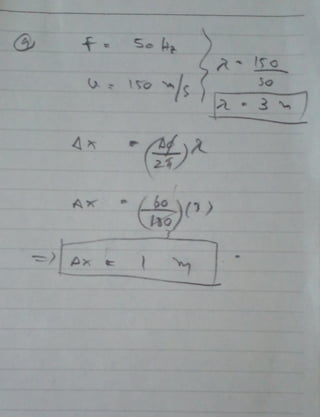 9
f = 50 Hz
u = 150 m/s } λ = 150/50
λ = 3 m
Δx = (Δϕ/2π) λ
Δx = (60/180)(3)
=> Δx = 1 m